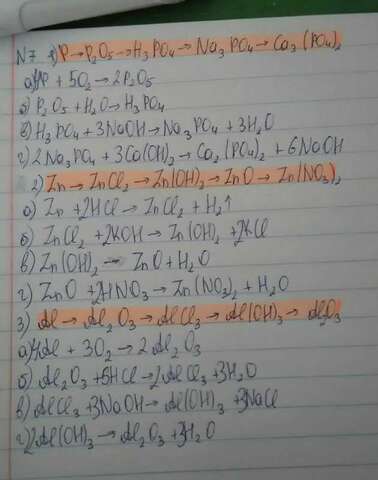 N7 1) P → P₂O₅ → H₃PO₄ → Na₃PO₄ → Ca₃(PO₄)₂
а) 4P + 5O₂ → 2P₂O₅
б) P₂O₅ + H₂O → H₃PO₄
в) H₃PO₄ + 3NaOH → Na₃PO₄ + 3H₂O
г) 2Na₃PO₄ + 3Ca(OH)₂ → Ca₂(PO₄)₂ + 6NaOH
2) Zn → ZnCl₂ → Zn(OH)₂ → ZnO → Zn(NO₃)₂
а) Zn + 2HCl → ZnCl₂ + H₂↑
б) ZnCl₂ + 2KOH → Zn(OH)₂ + 2KCl
в) Zn(OH)₂ → ZnO + H₂O
г) ZnO + 2HNO₃ → Zn(NO₃)₂ + H₂O
3) Al → Al₂O₃ → AlCl₃ → Al(OH)₃ → Al₂O₃
а) 4Al + 3O₂ → 2Al₂O₃
б) Al₂O₃ + 6HCl → 2AlCl₃ + 3H₂O
в) AlCl₃ + 3NaOH → Al(OH)₃ + 3NaCl
г) 2Al(OH)₃ → Al₂O₃ + 3H₂O